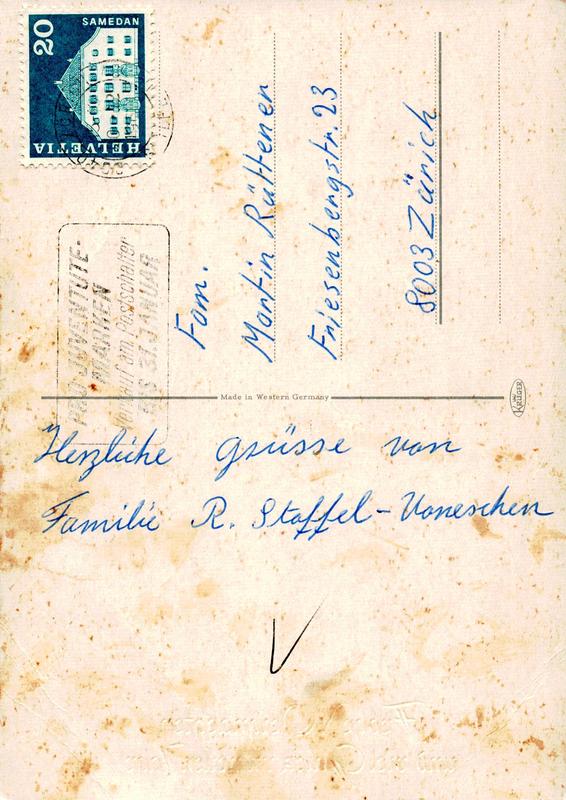 20
SAMEDAN
HELVETIA
PRO JUVENTUTE-
MARKEN
Verkauf am Postschalter
BIS 31. JANUAR
Fam.
Martin Rüttener
Friesenbergstr. 23
8003 Zürich
Made in Western Germany
KRÜGER
Herzliche Grüsse von
Familie R. Stoffel-Voneschen